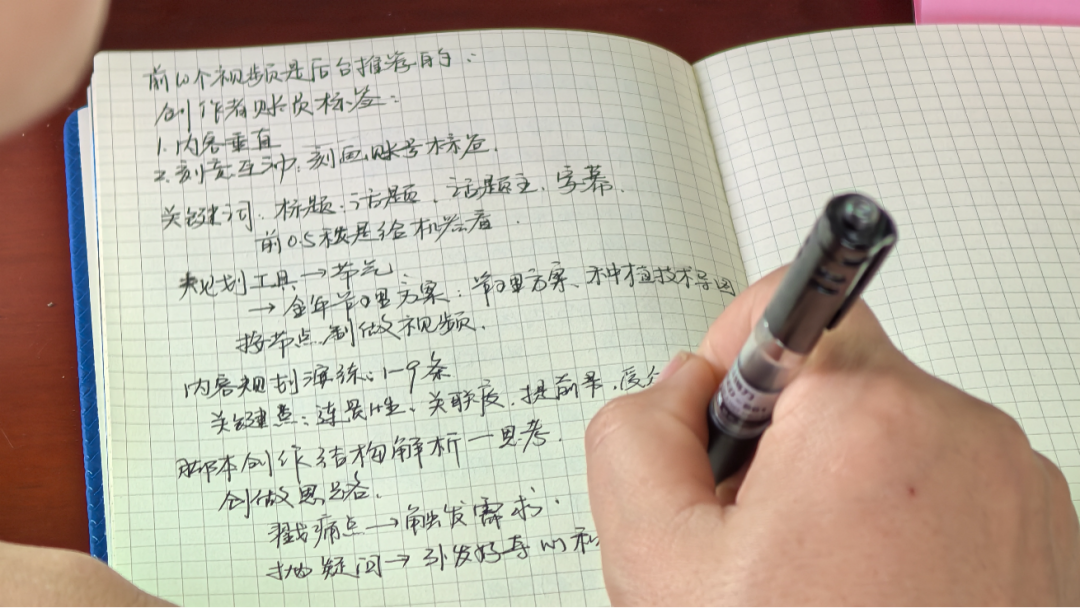 前10个视频是后台推荐的:
创作者账号标签:
1.内容垂直
2.刻意互动:刻画账号标签.
关键词:标题.话题.话题主.字幕.
前0.5秒是给机器看.
规划工具→节气
→全年管理方案:管理方案、种植技术导图
按节点制做视频.
内容规划演练:1-9条
关键点:连贯性、关联度.提前量.
脚本创作结构解析一思考.
创做思路.
戳痛点→触发需求.
抛疑问→引发好奇心和